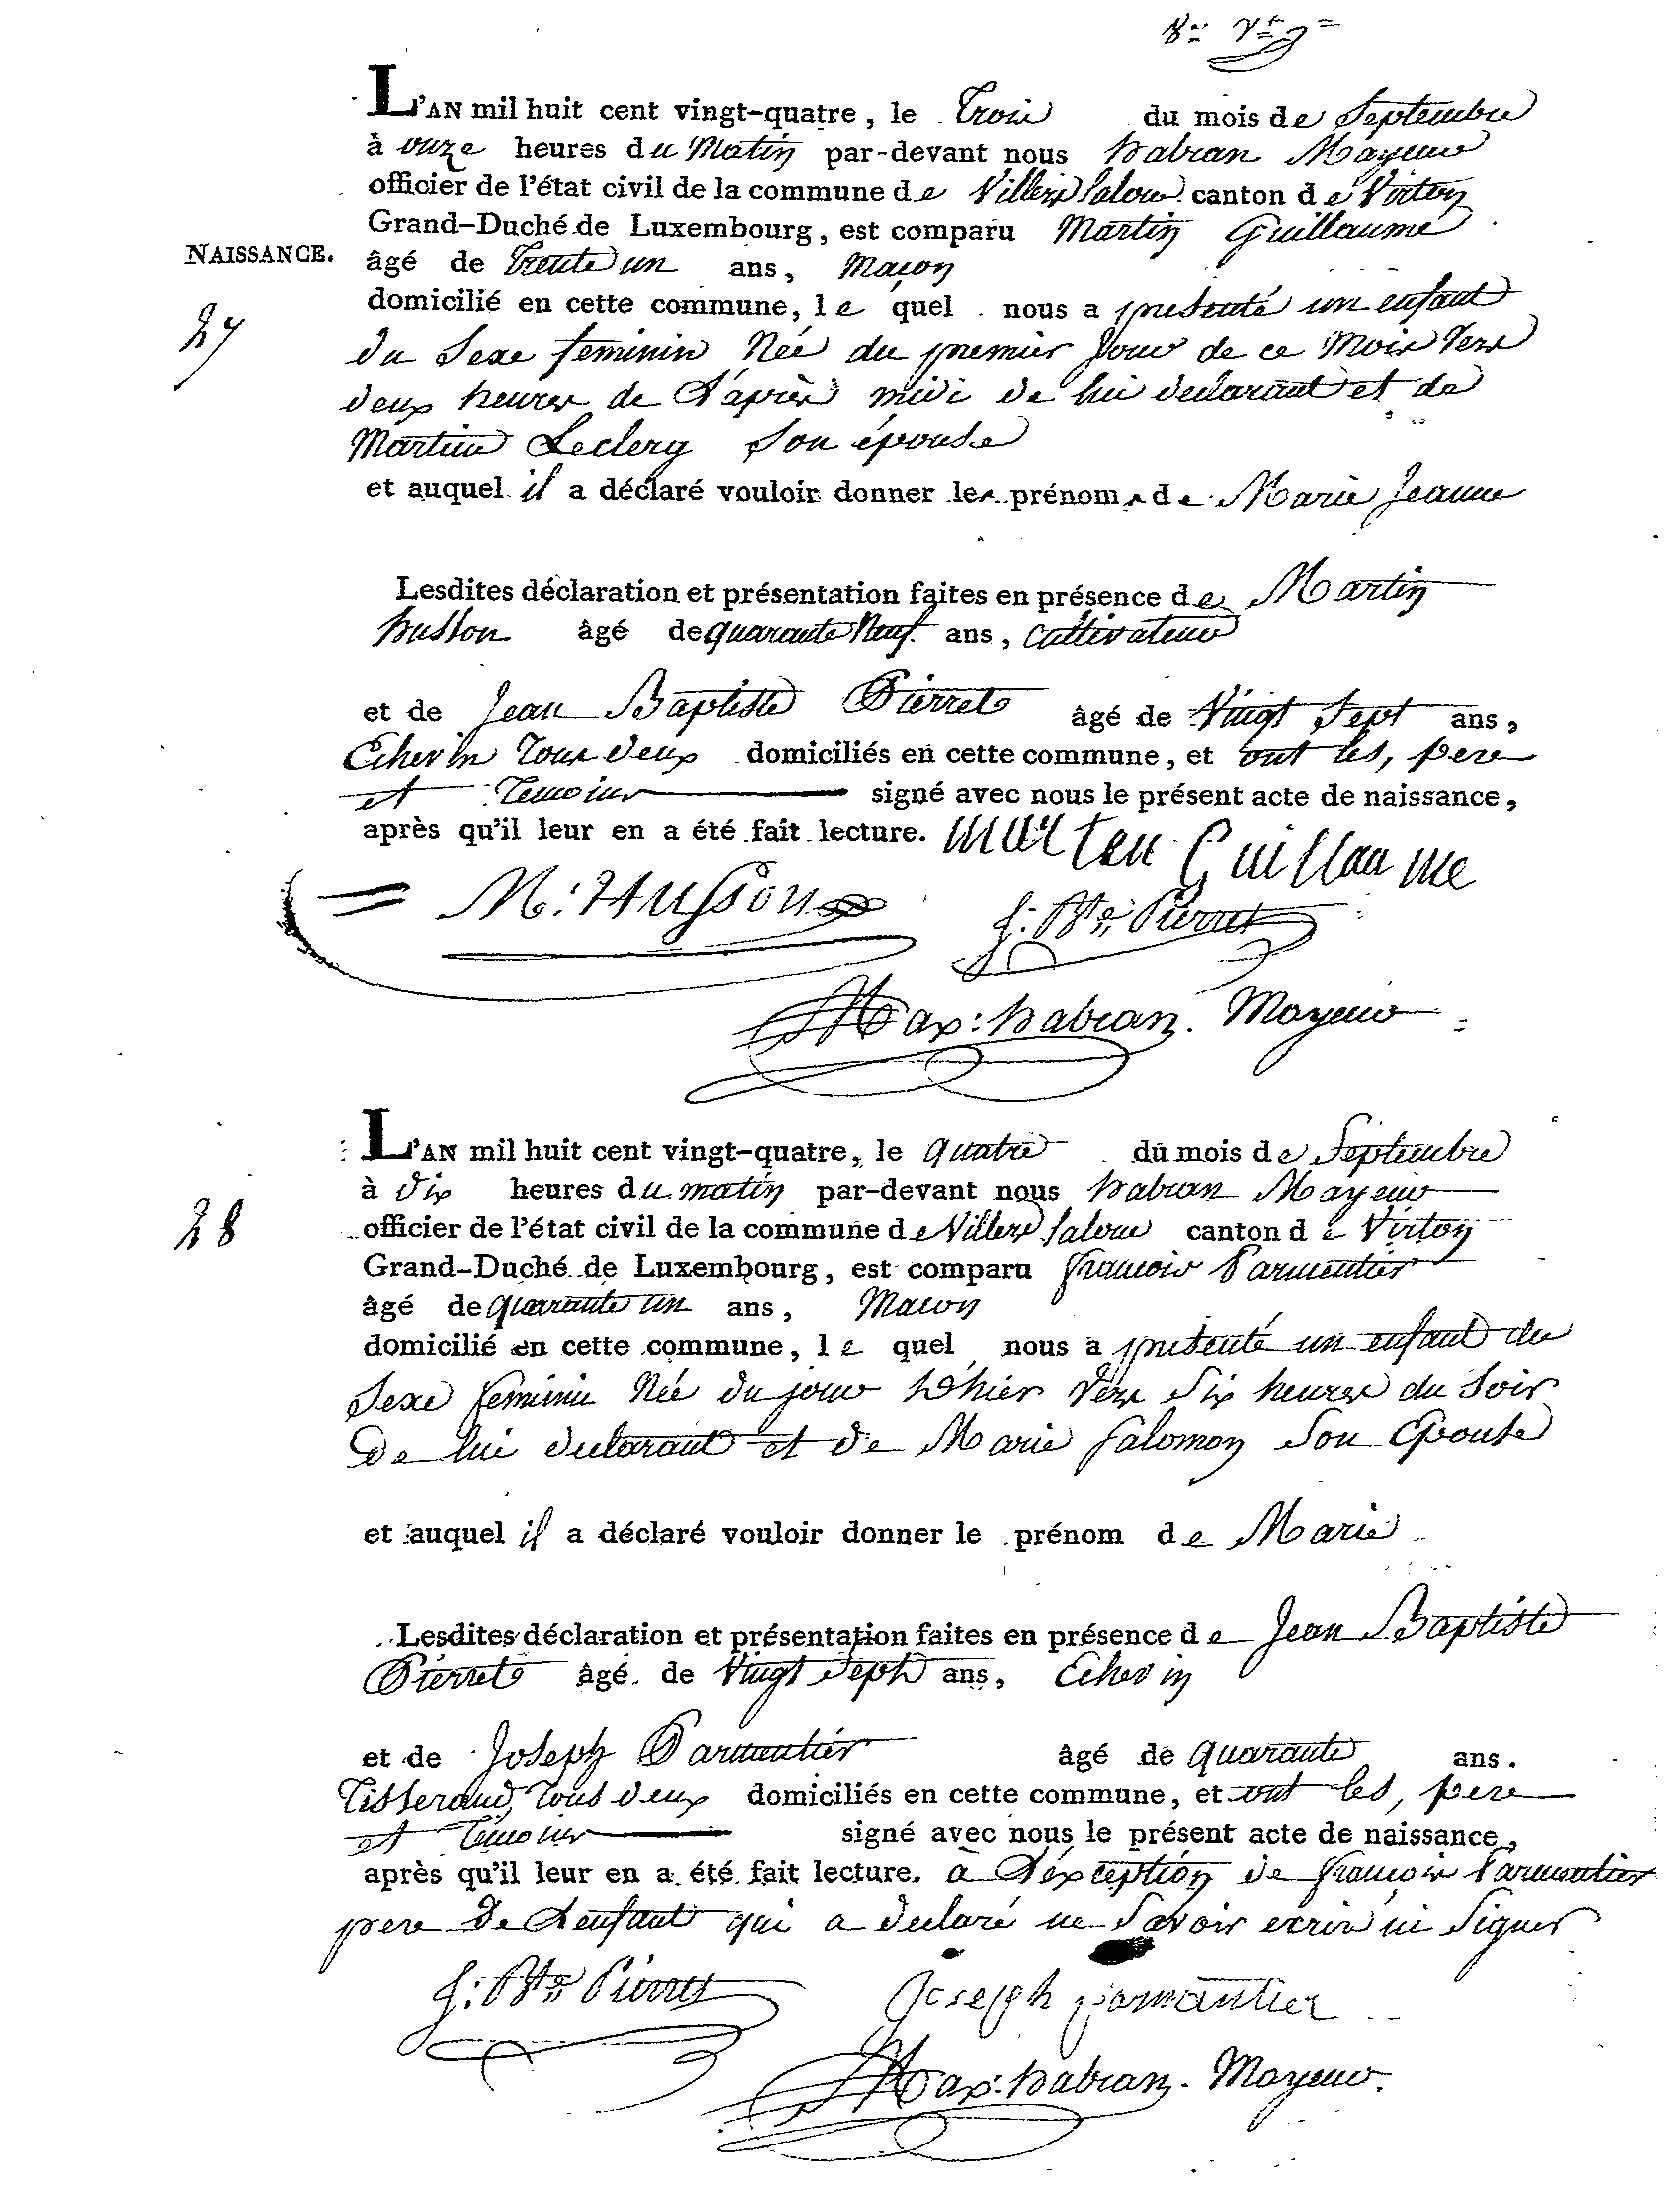 L'AN mil huit cent vingt-quatre, le Trois du mois de Septembre
à onze heures du Matin par-devant nous habran Mayeur
officier de l'état civil de la commune de Villers Saloue canton de Virton
Grand-Duché de Luxembourg, est comparu Martin Guillaume
NAISSANCE. âgé de Trente un ans, Maçon
27
domicilié en cette commune, le quel nous a presenté un enfant
du Sexe feminin Née du premier Jour de ce Mois Vers
deux heures de L'après midi de lui declarant et de
Martine Leclerq Son épouse
et auquel il a déclaré vouloir donner les prénoms de Marie Jeanne
Lesdites déclaration et présentation faites en présence de Martin
husson âgé de quarante Neuf ans, cultivateur
et de Jean Baptiste Pierret âgé de Vingt Sept ans,
Echevin Tous deux domiciliés en cette commune, et ont les, pere
et Temoins signé avec nous le présent acte de naissance,
après qu'il leur en a été fait lecture. Marten Guillaume
M: Husson J: Bte Pierret
Max: habran. Mayeur
L'AN mil huit cent vingt-quatre, le quatre du mois de Septembre
à dix heures du matin par-devant nous habran Mayeur
28
officier de l'état civil de la commune de Villers Saloue canton de Virton
Grand-Duché de Luxembourg, est comparu françois Parmentier
âgé de quarante un ans, Macon
domicilié en cette commune, le quel nous a presenté un enfant du
Sexe feminin Née du jour D'hier Vers Six heures du Soir
de lui declarant et de Marie Salomon Son Epouse
et auquel il a déclaré vouloir donner le prénom de Marie
Lesdites déclaration et présentation faites en présence de Jean Baptiste
Pierret âgé de Vingt Sept ans, Echevin
et de Joseph Parmentier âgé de quarante ans.
Tisserand, Tous deux domiciliés en cette commune, et ont les, pere
et Témoins signé avec nous le présent acte de naissance,
après qu'il leur en a été fait lecture. à L'éxception de françois Parmentier
pere de L'enfant qui a declaré ne Savoir ecrire ni Signer
J: Bte Pierret Joseph parmantier
Max: habran. Mayeur.